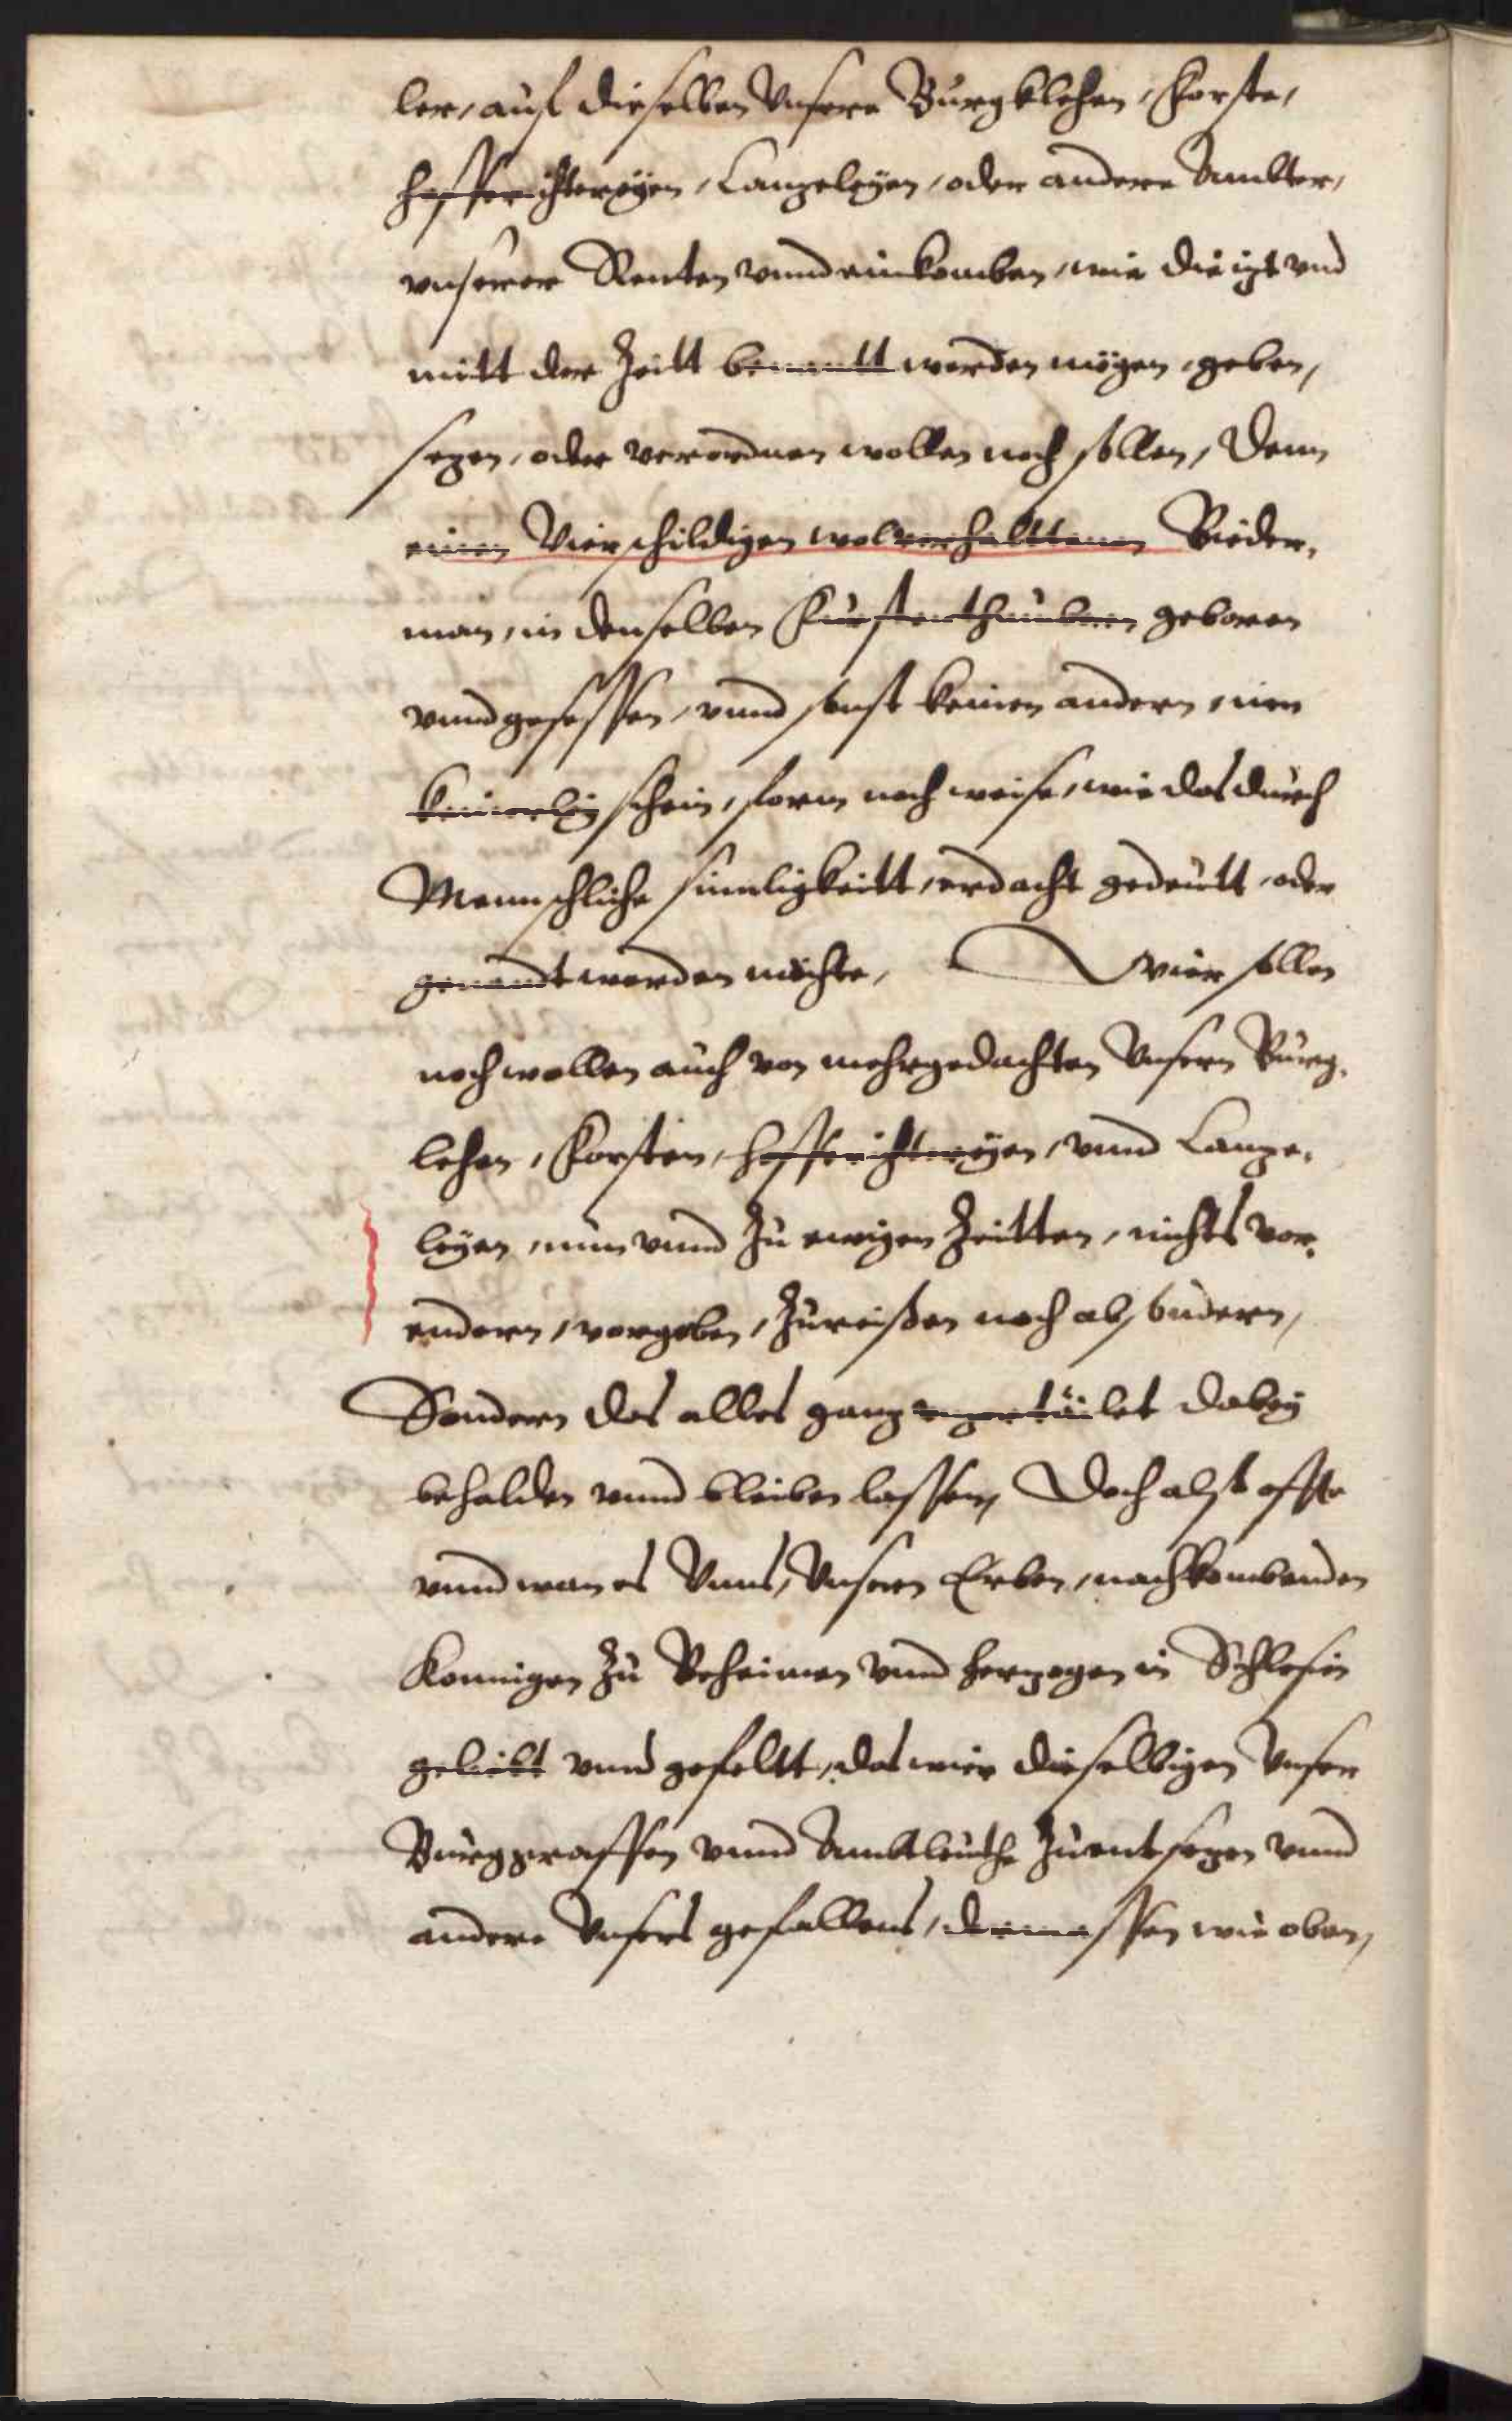 ler, auf dieselben Vnsere Burgklehen, Forste,
hofferichtereÿen, Canzeleÿen, oder andere Ambter,
vnserer Renten vnnd einkomben, wie die izt vnd
mitt der Zeitt benantt werden mögen, geben,
sezen, oder verordnen wollen noch sollen, Denn
einen Vierschildigen wolverhalttenen Bieder,
man, in denselben Furstenthumben geboren
vnnd gesessen, vnnd sonst keinen andern, inn
keinerleÿ schein, form noch weise, wie das durch
Mennschliche sinnligkeitt, erdacht gedeutt, oder
genandt werden möchte, Wier sollen
noch wollen auch von mehrgedachten Vnsern Burg,
lehen, Forsten, hofferichtereÿen, vnnd Canze,
leÿen, nun vnnd Zu ewigen Zeitten, nichts vor,
endern, vorgeben, Zureißen noch absondern,
Sondern das alles ganz vnzertailet dabeÿ
behalden vnnd bleiben lassen, Doch alßt offte
vnnd wan es Vnns, Vnsern Erben, nachkombenden
Konnigen Zu Beheimen vnnd herzogen in Schlesien
geliebt vnnd gefeltt, das wier dieselbigen Vnser
Burggraffen vnnd Ambtleuthe Zuentsezen vnnd
andere Vnsers gefallens, dermassen wie oben,